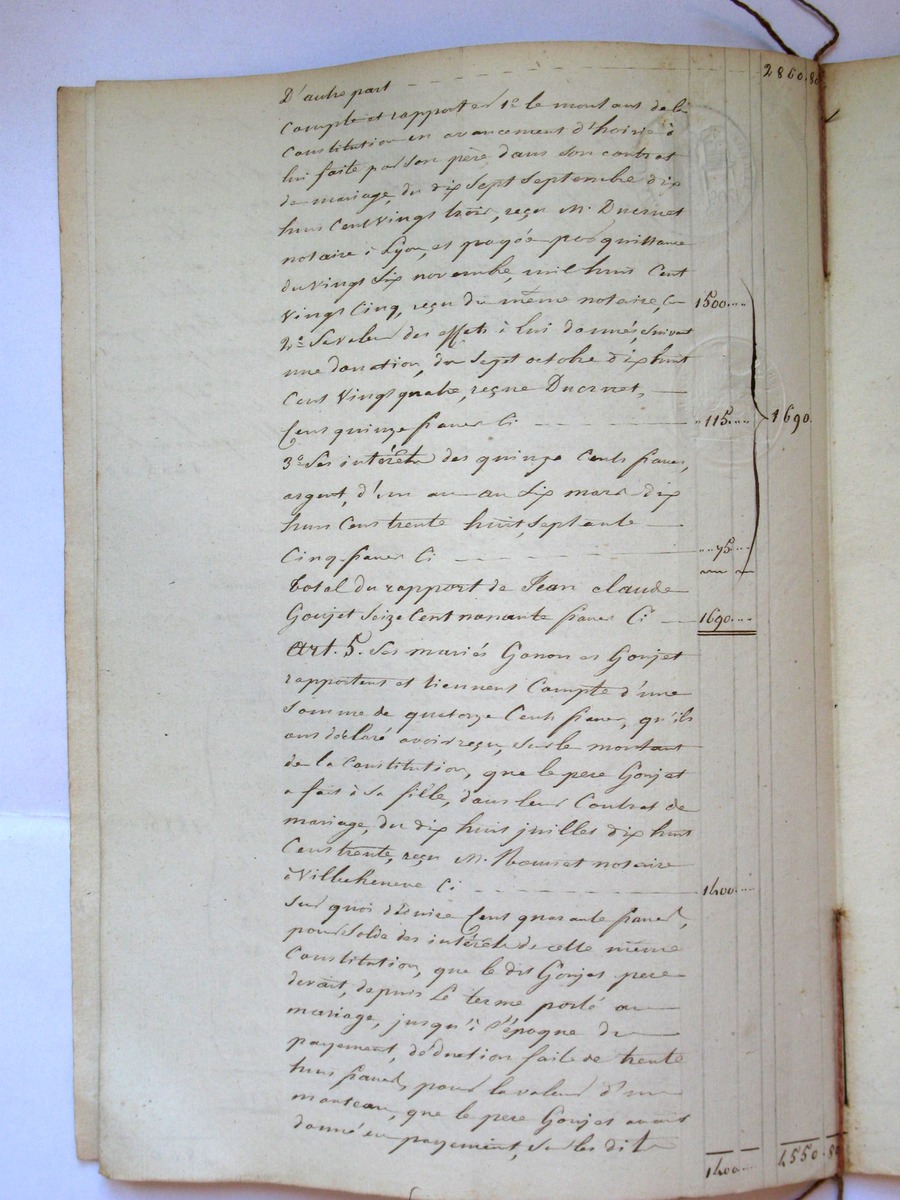 D'autre part 2860.80
Compte et rapport est 1° le montant de la
Constitution en avancement d'hoirie à
lui faite par son père dans son contrat
de mariage, du dix sept septembre dix
huit cent vingt trois, reçu M. Ducruet
notaire à Lyon, et payée par quittance
du vingt six novembre, mil huit cent
vingt cinq, reçu du même notaire, Ci 1500....
2° La valeur des effets à lui donnés, suivant
une donation, du sept octobre dix huit
cent vingt quatre, reçue Ducruet,
Cent quinze francs Ci ..115.... 1690.
3° Les intérêts des quinze cents francs,
argent, d'un an au six mars dix
huit cent trente huit, septante
Cinq francs Ci ...75...
Total du rapport de Jean claude
Goujet Seize Cent nonante francs Ci 1690....
Art. 5. Les mariés Ganon et Goujet
rapportent et tiennent Compte d'une
somme de quatorze Cents francs, qu'ils
ont déclaré avoir reçu, sur le montant
de la Constitution, que le pere Goujet
a fait à sa fille, dans leur Contrat de
mariage, du dix huit juillet dix huit
Cent trente, reçu M. notaire
à Villecheneve Ci 1400....
Sur quoi déduire Cent quarante francs,
pour solde des intérêts de cette même
Constitution, que le dit Goujet pere
devait, depuis le terme porté au
mariage, jusqu'à l'époque du
payement, déduction faite de trente
huit francs, pour la valeur d'un
manteau, que le pere Goujet avait
donné en payement, sur les dits
1400.... 4550.80